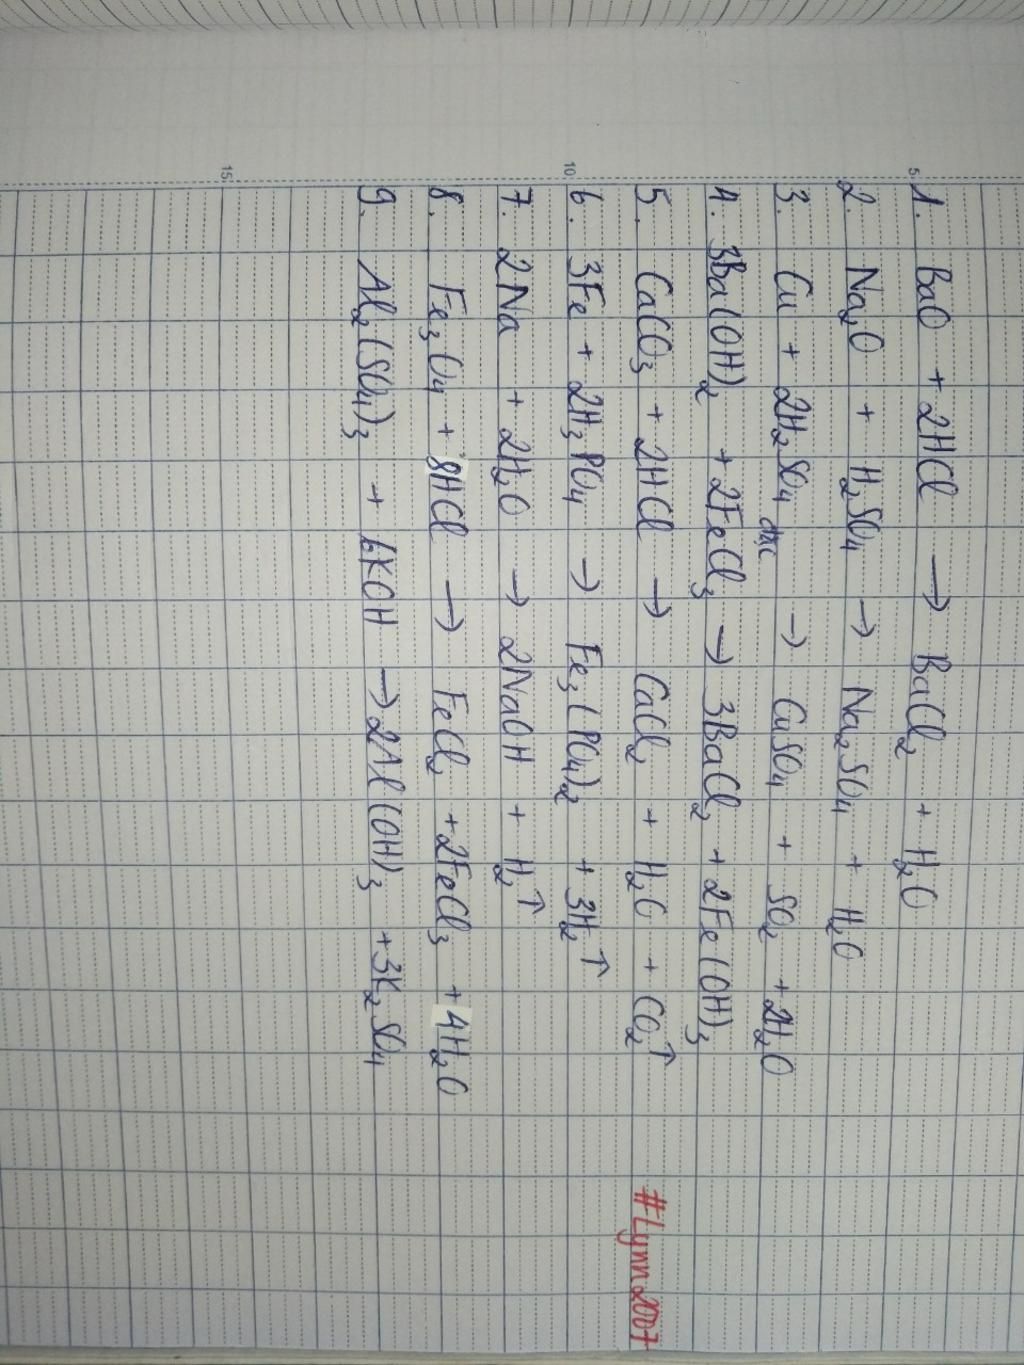 1. BaO + 2HCl → BaCl₂ + H₂O
2. Na₂O + H₂SO₄ → Na₂SO₄ + H₂O
3. Cu + 2H₂SO₄ đặc → CuSO₄ + SO₂ + 2H₂O
4. 3Ba(OH)₂ + 2FeCl₃ → 3BaCl₂ + 2Fe(OH)₃
5. CaCO₃ + 2HCl → CaCl₂ + H₂O + CO₂↑
6. 3Fe + 2H₃PO₄ → Fe₃(PO₄)₂ + 3H₂↑
7. 2Na + 2H₂O → 2NaOH + H₂↑
8. Fe₃O₄ + 8HCl → FeCl₂ + 2FeCl₃ + 4H₂O
9. Al₂(SO₄)₃ + 6KOH → 2Al(OH)₃ + 3K₂SO₄
#Lynn2007
5
10
15